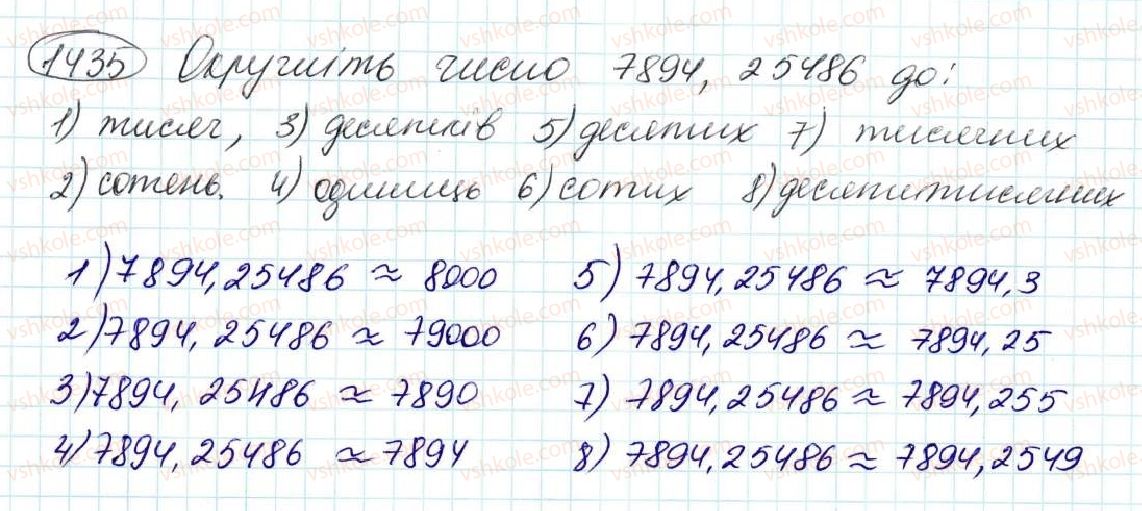 1435 Округліть число 7894, 25486 до:
1) тисяч, 3) десятків 5) десятих 7) тисячних
2) сотень. 4) одиниць 6) сотих 8) десятитисячних
1) 7894,25486 ≈ 8000 5) 7894,25486 ≈ 7894,3
2) 7894, 25486 ≈ 79000 6) 7894,25486 ≈ 7894,25
3) 7894, 25486 ≈ 7890 7) 7894,25486 ≈ 7894,255
4) 7894,25486 ≈ 7894 8) 7894,25486 ≈ 7894,2549
vshkole.com